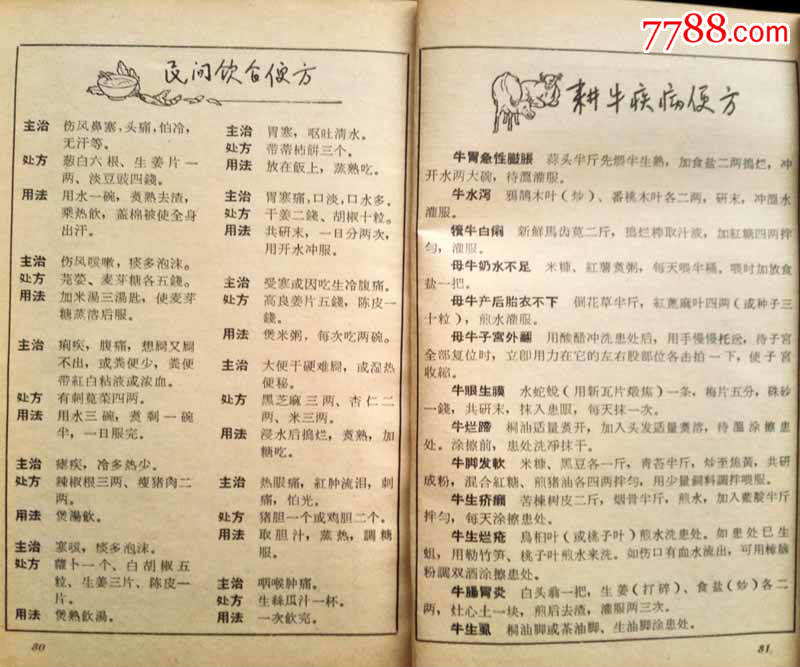 7788.com
民间饮食便方
主治 伤风鼻塞,头痛,怕冷,
无汗等。
处方 葱白六根、生姜片一
两、淡豆豉四錢。
用法 用水一碗,煑熟去渣,
乘热飲,盖棉被使全身
出汗。
主治 伤风咳嗽,痰多泡沫。
处方 芫荽、麦芽糖各五錢。
用法 加米湯三湯匙,使麦芽
糖蒸溶后服。
主治 痢疾,腹痛,想屙又屙
不出,或粪便少,粪便
带紅白粘液或浓血。
处方 有刺莧菜四两。
用法 用水三碗,煑剩一碗
半,一日服完。
主治 瘧疾,冷多热少。
处方 辣椒根三两、瘦猪肉二
两。
用法 煲湯飲。
主治 寒咳,痰多泡沫。
处方 蘿卜一个、白胡椒五
粒、生姜三片、陈皮一
片。
用法 煲熟飲湯。
80
主治 胃寒,呕吐清水。
处方 带蒂柿餅三个。
用法 放在飯上,蒸熟吃。
主治 胃寒痛,口淡,口水多。
处方 干姜二錢、胡椒十粒。
用法 共研末,一日分两次,
用开水冲服。
主治 受寒或因吃生冷腹痛。
处方 高良姜片五錢,陈皮一
錢。
用法 煲米粥,每次吃两碗。
主治 大便干硬难屙,或湿热
便秘。
处方 黑芝麻三两、杏仁二
两、米三两。
用法 浸水后搗烂,煑熟,加
糖吃。
主治 热眼痛,紅肿流泪,刺
痛,怕光。
处方 猪胆一个或鸡胆二个。
用法 取胆汁,蒸热,調糖
服。
主治 咽喉肿痛。
处方 生絲瓜汁一杯。
用法 一次飲完。
耕牛疾病便方
牛胃急性臌脹 蒜头半斤先煨半生熟,加食盐二两搗烂,冲
开水两大碗,待溫灌服。
牛水泻 鴉鵲木叶(炒)、番桃木叶各二两,研末,冲溫水
灌服。
犢牛白痢 新鮮馬齿莧二斤,搗烂榨取汁液,加紅糖四两拌
匀,灌服。
母牛奶水不足 米糠、紅薯煑粥,每天喂半桶,喂时加放食
盐一把。
母牛产后胎衣不下 倒花草半斤,紅蓖麻叶四两(或种子三
十粒),煎水灌服。
母牛子宮外翻 用酸醋冲洗患处后,用手慢慢托返,待子宮
全部复位时,立即用力在它的左右股部位各击拍一下,使子宮
收縮。
牛眼生膜 水蛇蛻(用新瓦片煅焦)一条,梅片五分,硃砂
一錢,共研末,抹入患眼,每天抹一次。
牛烂蹄 桐油适量煑开,加入头发适量煑溶,待溫涂擦患
处。涂擦前,患处洗凈抹干。
牛脚发軟 米糠、黑豆各一斤,青苔半斤,炒至焦黃,共研
成粉,混合紅糖、煎猪油各四两拌匀,用少量飼料調拌喂服。
牛生疥癩 苦楝树皮二斤,烟骨半斤,煎水,加入藍靛半斤
拌匀,每天涂擦患处。
牛生烂疮 烏桕叶(或桃子叶)煎水洗患处。如患处已生
蛆,用勒竹笋、桃子叶煎水来洗。如伤口有血水流出,可用樟脑
粉調双酒涂擦患处。
牛腸胃炎 白头翁一把,生姜(打碎)、食盐(炒)各二
两,灶心土一块,煎后去渣,灌服两三次。
牛生虱 桐油脚或茶油脚、生油脚涂患处。
81